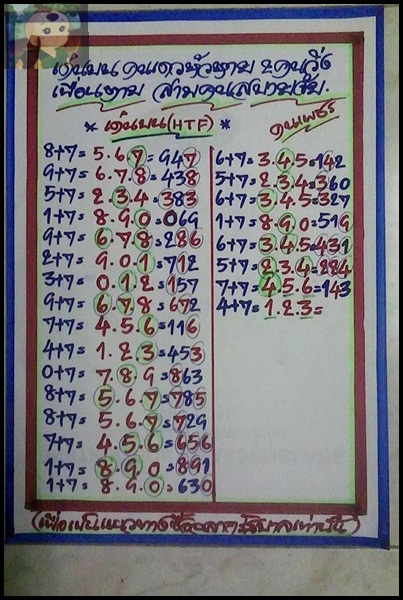 เด่นบน คนเดวหัวหาย ๒คนวิ่ง
เพื่อนตาย สามคนสบายรับ.
* เด่นบน(HTF) *
8+7= 5.6.7=947
9+7= 6.7.8=438
5+7= 2.3.4=383
1+7= 8.9.0=069
9+7= 6.7.8=286
2+7= 9.0.1=712
3+7= 0.1.2=157
9+7= 6.7.8=672
7+7= 4.5.6=116
4+7= 1.2.3=453
0+7= 7.8.9=863
8+7= 5.6.7=785
8+7= 5.6.7=729
7+7= 4.5.6=656
1+7= 8.9.0=891
1+7= 8.9.0=630
คนเพชร
6+7= 3.4.5=142
5+7= 2.3.4=360
6+7= 3.4.5=327
1+7= 8.9.0=519
6+7= 3.4.5=431
5+7= 2.3.4=224
7+7= 4.5.6=143
4+7= 1.2.3=
(เพื่อเป็นแนวทางซื้อสลากรัฐบาลเท่านั้น)